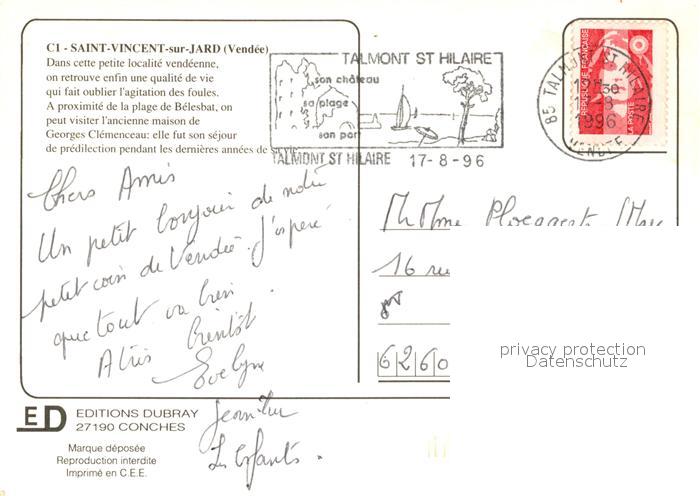 C1 - SAINT-VINCENT-sur-JARD (Vendée)
Dans cette petite localité vendéenne,
on retrouve enfin une qualité de vie
qui fait oublier l'agitation des foules.
A proximité de la plage de Bélesbat, on
peut visiter l'ancienne maison de
Georges Clémenceau: elle fut son séjour
de prédilection pendant les dernières années de
TALMONT ST HILAIRE
son château
sa plage
son port
TALMONT ST HILAIRE 17-8-96
85 TALMONT ST HILAIRE
1996
VENDEE
REPUBLIQUE FRANÇAISE
LA POSTE
Chers Amis
Un petit bonjour de notre
petit coin de Vendée. J'espère
que tout va bien.
A très bientôt
Evelyne
Les Enfants.
Mr Mme
16 rue
6260
privacy protection
Datenschutz
ED EDITIONS DUBRAY
27190 CONCHES
Marque déposée
Reproduction interdite
Imprimé en C.E.E.